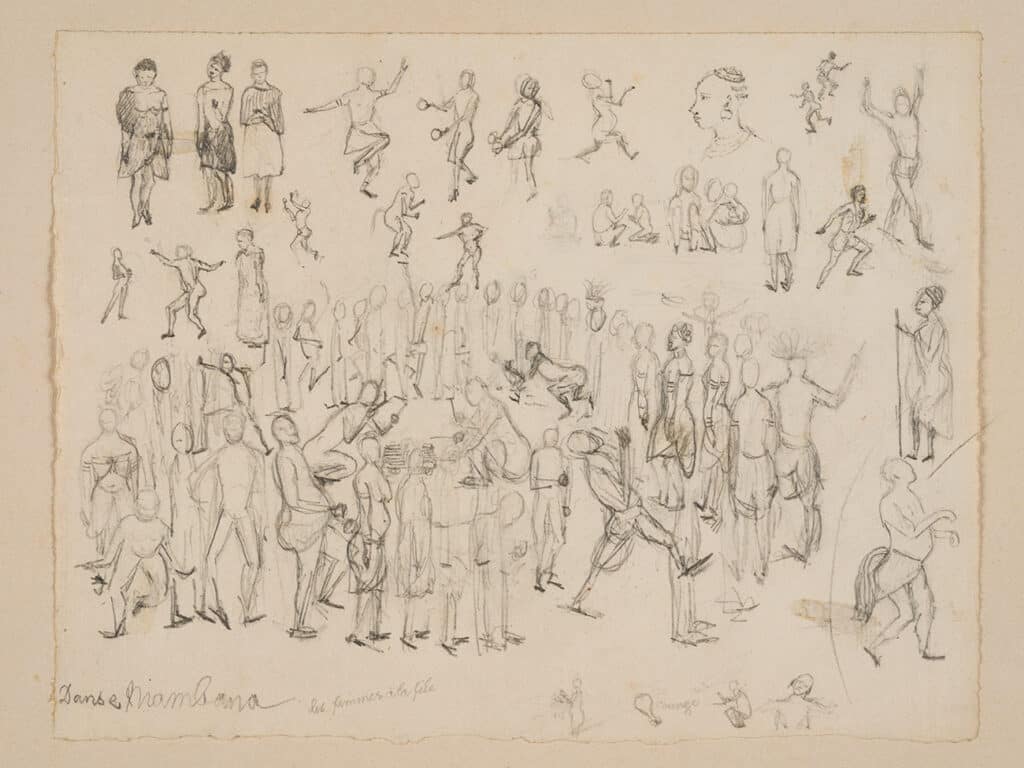 Danse Niambara
les femmes à la file